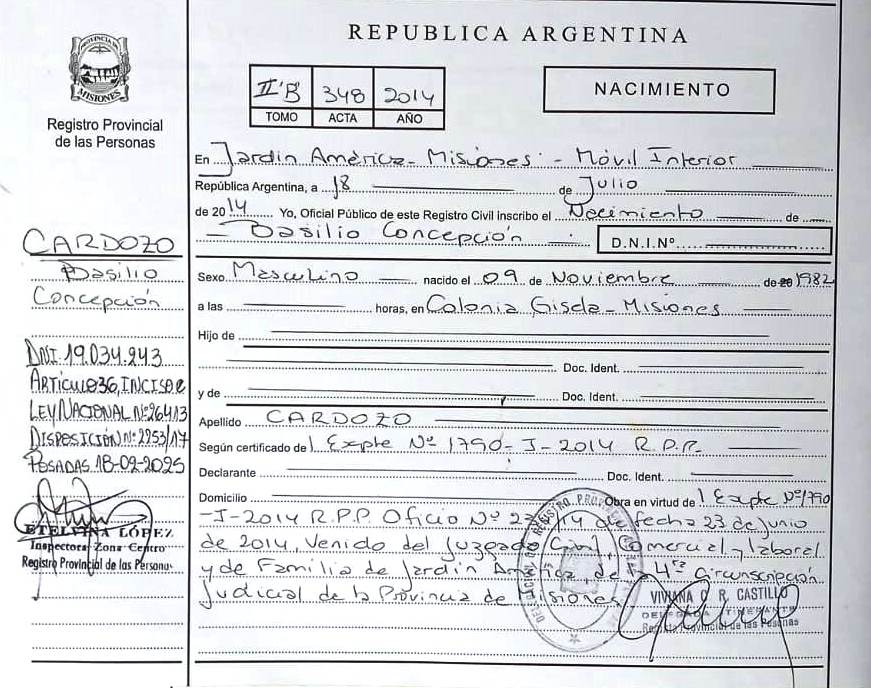 REPUBLICA ARGENTINA
PROVINCIA DE
MISIONES
Registro Provincial
de las Personas
II"B" 348 2014
TOMO ACTA AÑO
NACIMIENTO
En Jardín América - Misiones - Móvil Interior
República Argentina, a 18 de Julio
de 2014 Yo, Oficial Público de este Registro Civil inscribo el Nacimiento de
Basilio Concepción D.N.I.Nº
Sexo Masculino nacido el 09 de Noviembre de 20 1982
a las horas, en Colonia Gisela - Misiones
Hijo de
Doc. Ident.
y de Doc. Ident.
Apellido CARDOZO
Según certificado del Expte Nº 1790 - J - 2014 R.P.P.
Declarante Doc. Ident.
Domicilio Obra en virtud del Expte Nº 1790
- J - 2014 R.P.P. Oficio Nº /14 de fecha 23 de Junio
de 2014, Venido del Juzgado Civil, Comercial y laboral
y de Familia de Jardín América, de la 4ta Circunscripción
Judicial de la Provincia de Misiones
VIVIANA R. CASTILLO
DELEGADA ITINERANTE
Registro Provincial de las Personas
CARDOZO
Basilio
Concepción
DNI. 19.034.243
ARTICULO 36, INCISO C
LEY NACIONAL Nº 26413
DISPOSICIÓN Nº 2253/17
POSADAS 18-02-2025
ETELVINA LÓPEZ
Inspectora Zona Centro
Registro Provincial de las Personas